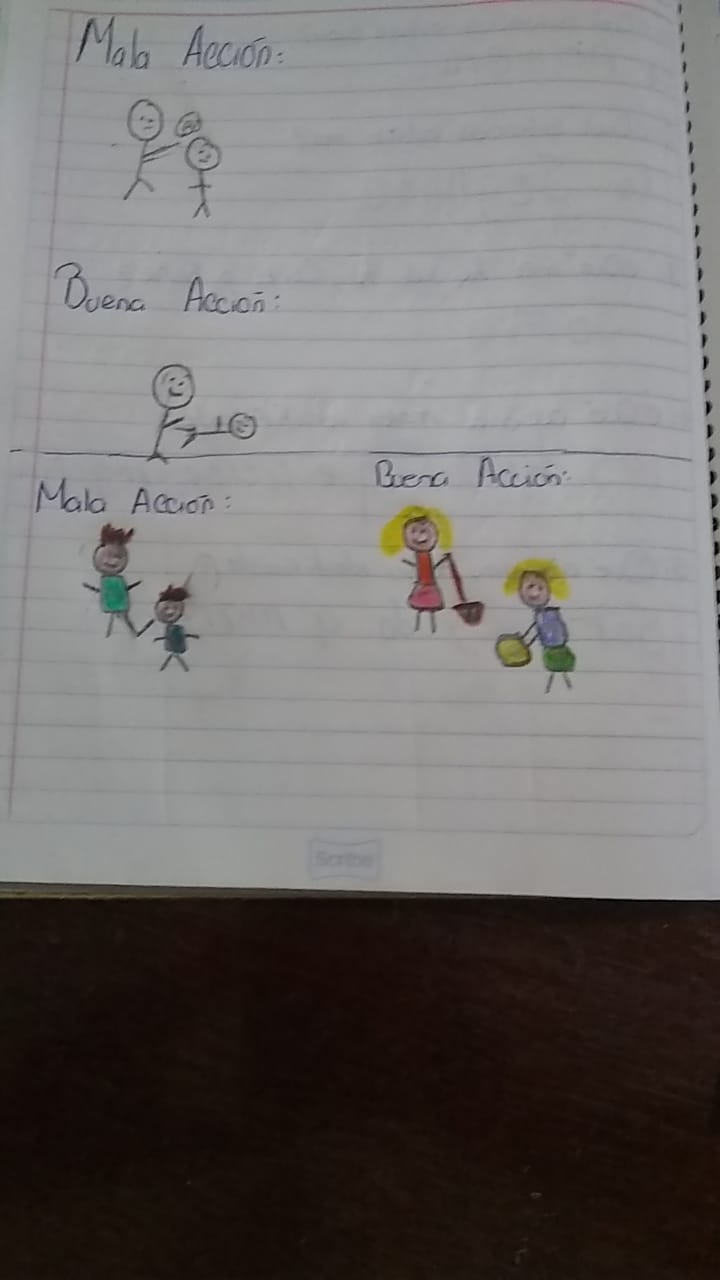 Mala Acción:
Buena Acción:
Mala Acción:
Buena Acción:
Scribe